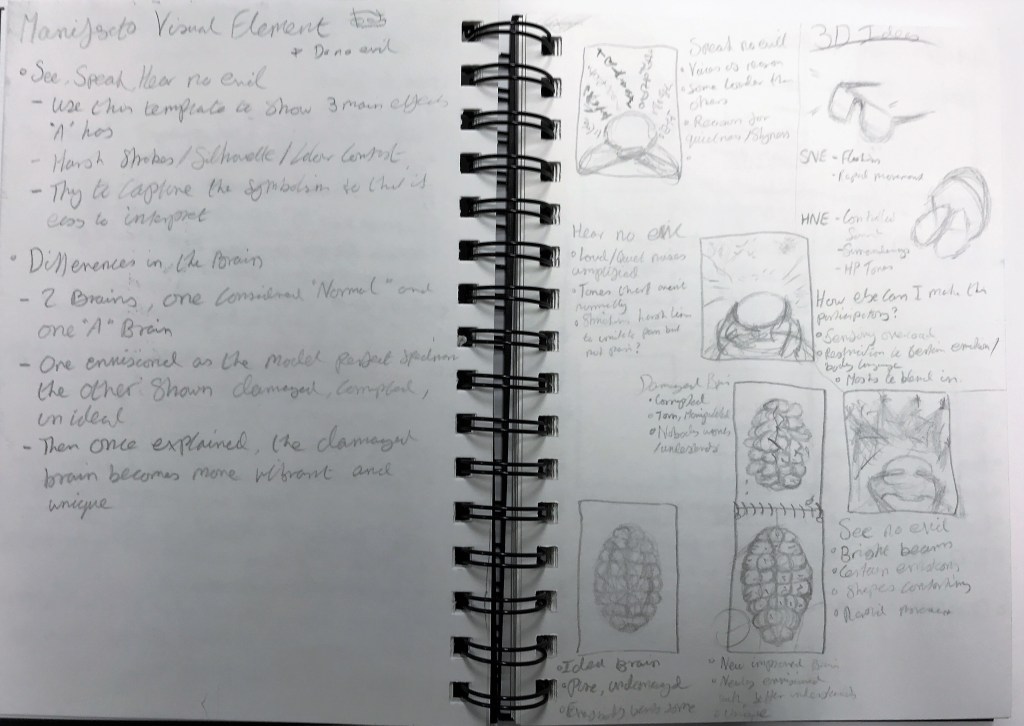 Manifesto Visual Element
+ Do no evil
• See, Speak, Hear no evil
- Use this template to show 3 main effects
"A" has
- Harsh Strobes/Silhouette/Colour Contrast
- Try to capture the symbolism so that it is
easy to interpret
• Differences in the Brain
- 2 Brains, one considered "Normal" and
one "A" Brain
- One envisioned as the model perfect specimen
the other shown damaged, corrupted,
un ideal
- Then once explained, the damaged
brain becomes more vibrant and
unique
Speak no evil
• Voices of
• Some louder than
others
• Reason for
quietness/Shyness
Hear no evil
• Loud/Quiet noises
amplified
• Tones that meant
normally
to emulate pain but
not pain?
Damaged Brain
• Corrupted
• Torn, Manipulated
• Nobody wants
/understands
• Ideal Brain
• Pure, undamaged
• Everybody wants some
• New improved Brain
• Newly envisioned
• Unique
3D Ideas
SNE - Flashing
• Rapid movement
HNE -
Surroundings
- HP Tones
How else can I make this
participatory?
• Sensory overload
• Restriction to certain emotion/
body language
• Masks to blend in.
See no evil
• Bright beams
• Certain
• Shapes contorting
• Rapid movement